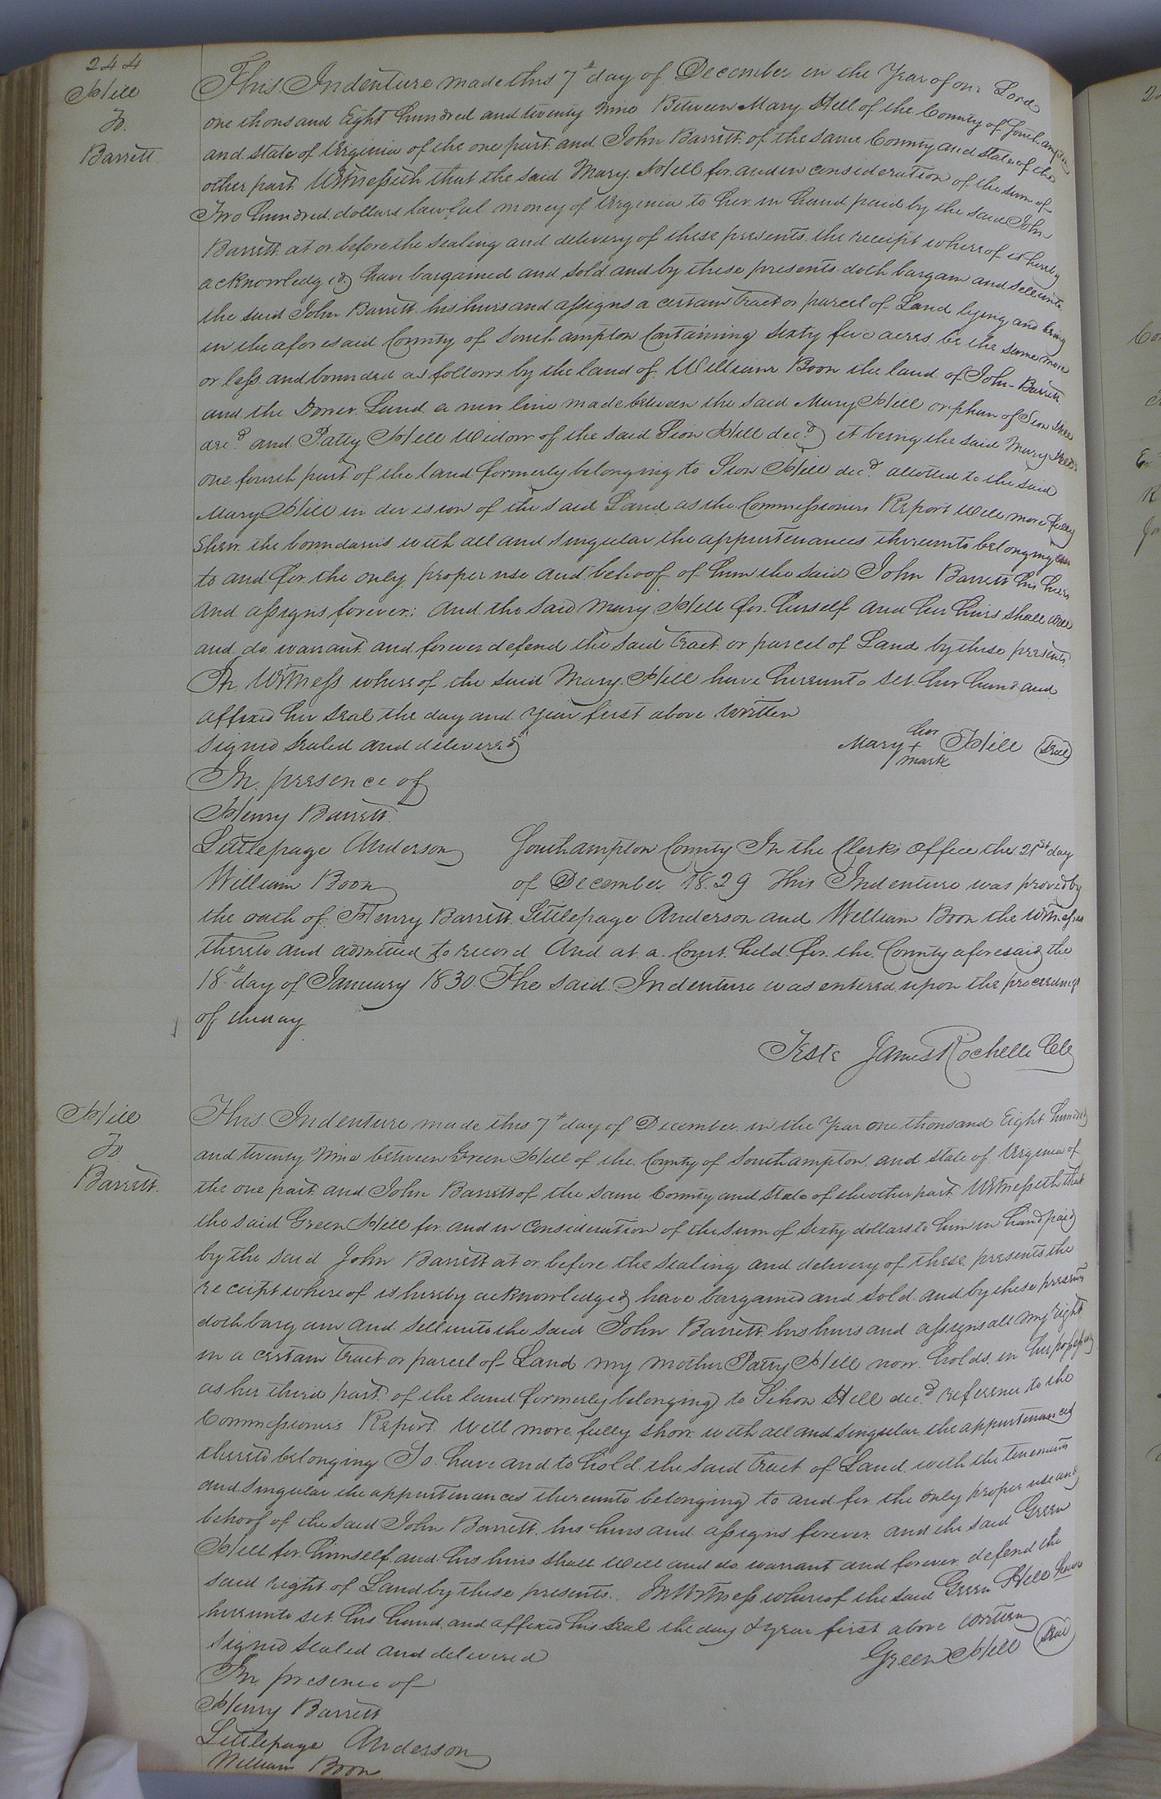 244
Hill
To
Barrett
This Indenture made this 7th day of December in the Year of our Lord
one thousand Eight hundred and twenty Nine Between Mary Hill of the County of Southampton
and state of Virginia of the one part and John Barrett of the same County and state of the
other part Witnesseth that the said Mary Hill for and in consideration of the sum of
Two hundred dollars lawful money of Virginia to her in hand paid by the said John
Barrett at or before the sealing and delivery of these presents the receipt whereof is hereby
acknowledged have bargained and sold and by these presents doth bargain and sell unto
the said John Barrett his heirs and assigns a certain Tract or parcel of Land lying and being
in the aforesaid County of Southampton Containing sixty five acres be the same more
or less and bounded as follows by the land of William Boon the land of John Barrett
and the Dower Land a new line made between the said Mary Hill orphan of Sion Hill
decd and Patty Hill Widow of the said Sion Hill decd it being the said Mary Hills
one fourth part of the land formerly belonging to Sion Hill decd allotted to the said
Mary Hill in devision of the said Land as the Commissioners Report will more fully
Shew the boundaries with all and singular the appurtenances thereunto belonging
to and for the only proper use and behoof of him the said John Barrett his heirs
and assigns forever; and the said Mary Hill for herself and her heirs shall will
and do warrant and forever defend the said Tract or parcel of Land by these presents
In Witness whereof the said Mary Hill have hereunto set her hand and
affixed her seal the day and year first above Written
Signed sealed and delivered
Mary her + mark Hill (Seal)
In presence of
Henry Barrett
Littlepage Anderson
William Boon
Southampton County In the Clerks Office the 21st day
of December 1829 This Indenture was proved by
the oath of Henry Barrett Littlepage Anderson and William Boon the Witnesses
thereto and admitted to record And at a Court held for the County aforesaid the
18th day of January 1830 The said Indenture was entered upon the proceedings
of the day
Teste James Rochelle Clk
Hill
To
Barrett
This Indenture made this 7th day of December in the Year one thousand Eight hundred
and twenty Nine between Green Hill of the County of Southampton and state of Virginia of
the one part and John Barrett of the same County and state of the other part Witnesseth that
the said Green Hill for and in consideration of the sum of sixty dollars to him in hand paid
by the said John Barrett at or before the sealing and delivery of these presents the
receipt whereof is hereby acknowledged have bargained and sold and by these presents
doth bargain and sell unto the said John Barrett his heirs and assigns all my right
in a certain tract or parcel of Land my mother Patty Hill now holds in her possession
as her third part of the land formerly belonging to Sihon Hill decd reference to the
Commissioners Report will more fully show with all and singular the appurtenances
thereto belonging To have and to hold the said tract of Land with the tenements
and singular the appurtenances thereunto belonging to and for the only proper use and
behoof of the said John Barrett his heirs and assigns forever and the said Green
Hill for himself and his heirs shall will and do warrant and forever defend the
said right of Land by these presents. In Witness whereof the said Green Hill have
hereunto set his hand and affixed his seal the day & year first above written
Signed sealed and delivered
Green Hill (Seal)
In presence of
Henry Barrett
Littlepage Anderson
William Boon